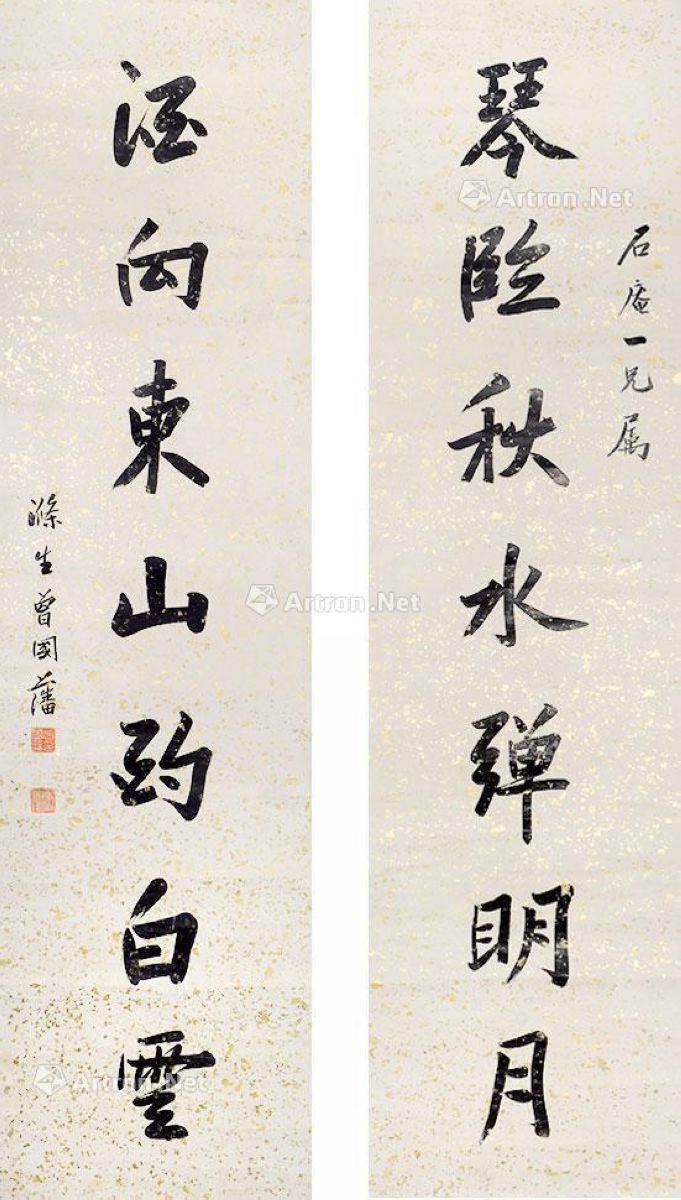 石庵一兄属
琴臨秋水弹明月
酒向東山酌白雲
滌生曾國藩
Artron.Net
Artron.Net
Artron.Net
Artron.Net